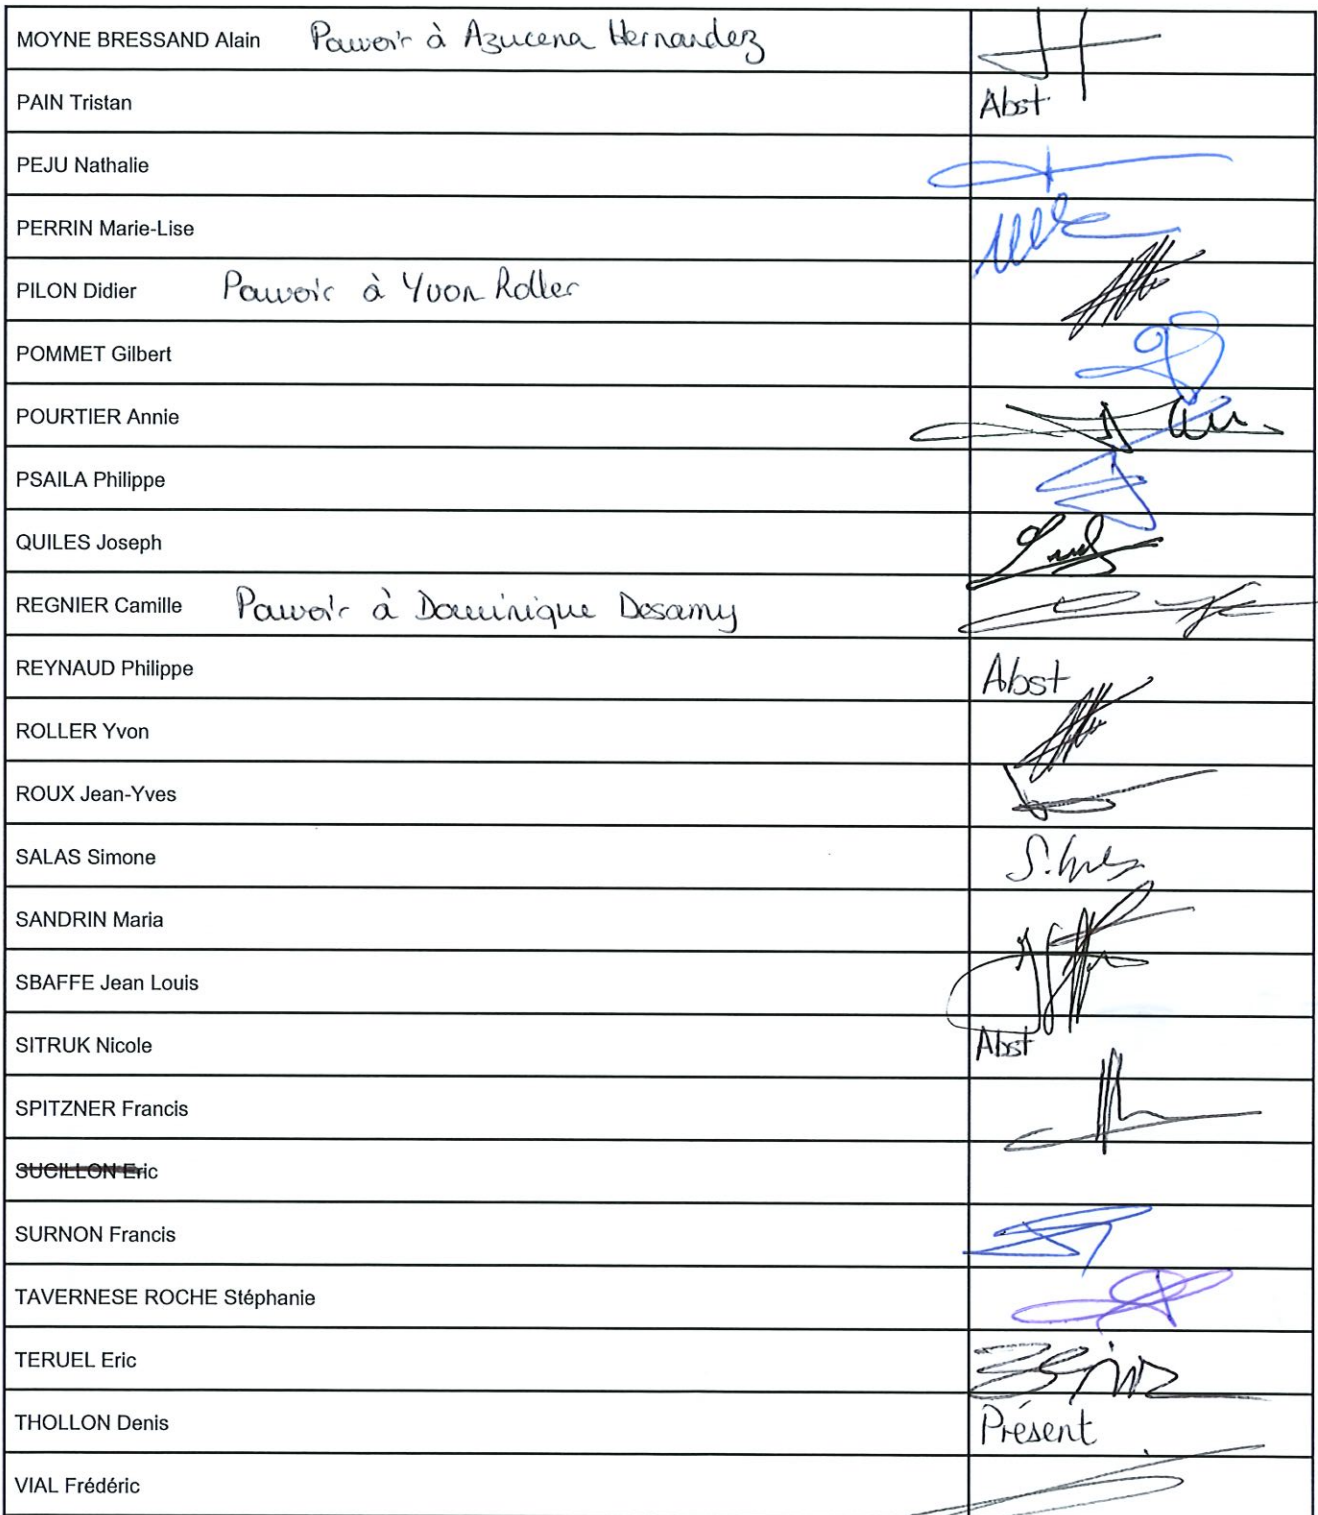 MOYNE BRESSAND Alain Pouvoir à Azucena Hernandez
PAIN Tristan Abst
PEJU Nathalie
PERRIN Marie-Lise
PILON Didier Pouvoir à Yvon Roller
POMMET Gilbert
POURTIER Annie
PSAILA Philippe
QUILES Joseph
REGNIER Camille Pouvoir à Dominique Dosamy
REYNAUD Philippe Abst
ROLLER Yvon
ROUX Jean-Yves
SALAS Simone
SANDRIN Maria
SBAFFE Jean Louis
SITRUK Nicole Abst
SPITZNER Francis
SUCILLON Eric
SURNON Francis
TAVERNESE ROCHE Stéphanie
TERUEL Eric
THOLLON Denis Présent
VIAL Frédéric